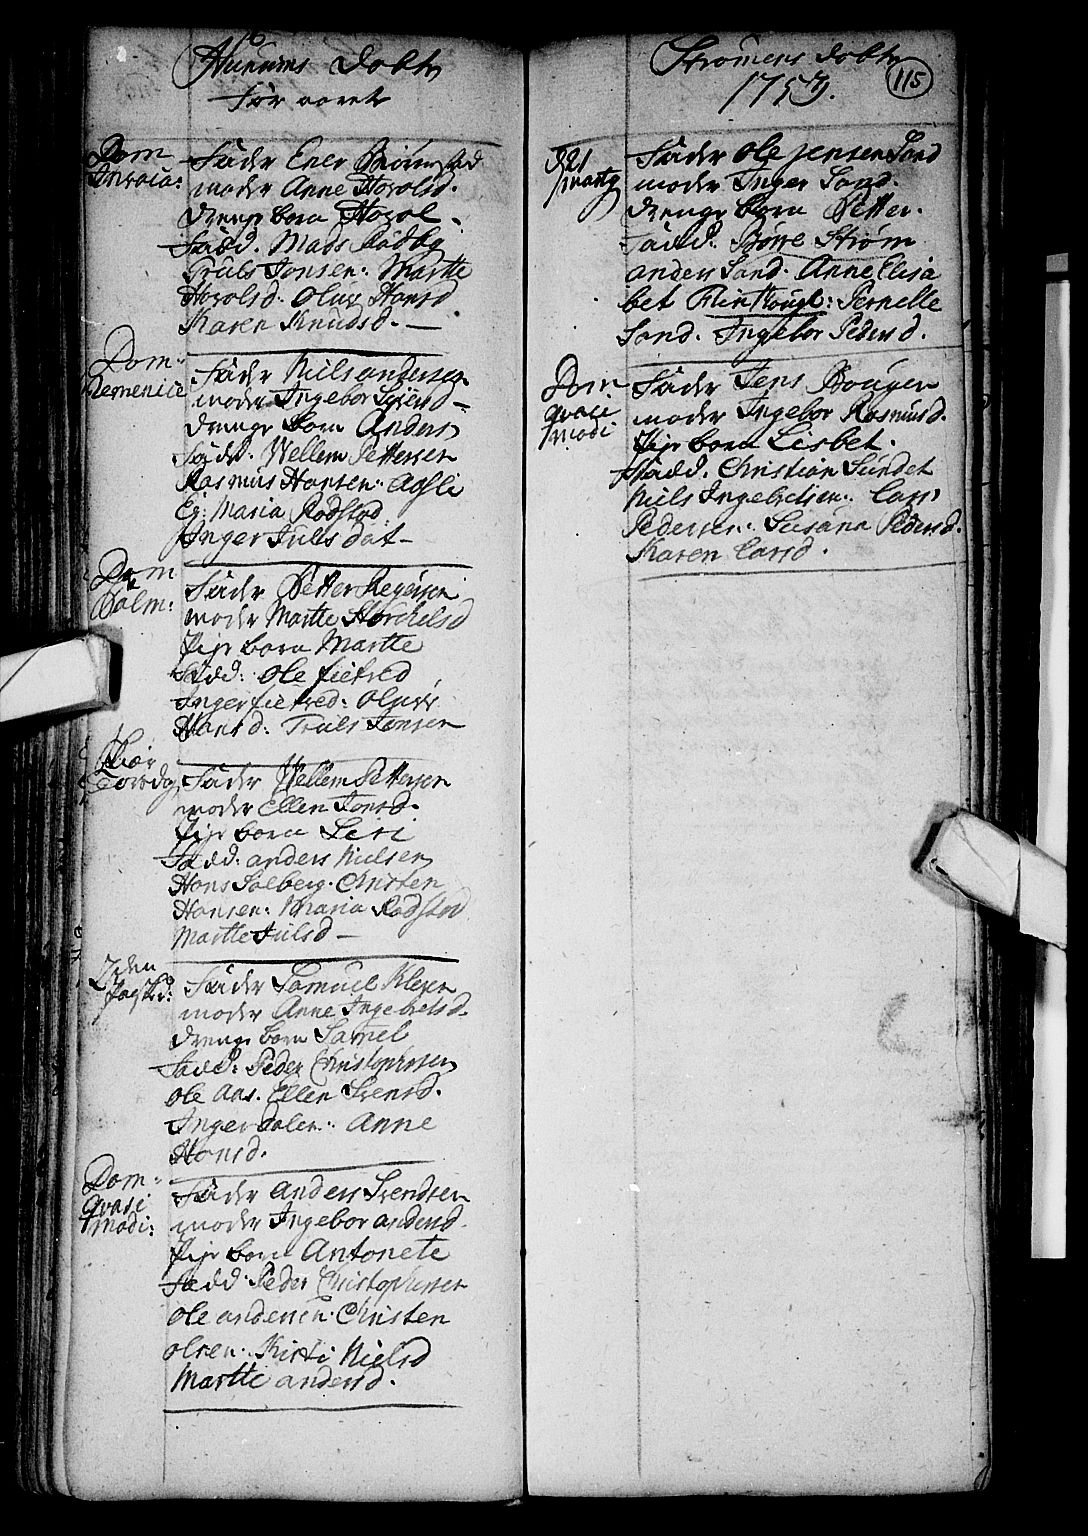 Hurums Dobte
for aaret
Dom
Invoca:
Fader Ener Brömstad
moder Anne Horolsd.
drenge barn Horol.
Fadd. Mads Rødbÿ
Truls Jonsen: Marthe
Horolsd. Oluv Hansd
Karen Knudsd. —
Dom:
Remenice
Fader Niels andersen
moder Ingebor
drenge barn Anders
Fadd. Wellem Pettersen
Rasmus Hansen: Aasle
Eg: Maria Rødstad
Inger Juls dat —
Dom
Palm:
Fader Petter Regersen
moder Marthe Thorchelsd
Pige barn Marthe
Fadd: Ole fietred
Inger fietred: Oluv
Hansd: Truls Jonsen
Skiær
Torsdag
Fader Wellem Pettersen
moder Ellen Jonsd.
Pige barn Lisi
Fadd: anders Nielsen
Hans Solberg. Christen
Hansen: Maria Rødstad
Marthe Julsd —
2den
Paaskd:
Fader Samuel Klesen
moder Anne Ingebretsd.
drenge barn Samel
Fadd: Peder Christophersen
Ole Aas. Ellen Svensd.
Inger Dalen: Anne
Hansd.
Dom:
Qvasi
modi:
Fader Anders Svendsen
moder Ingebor andersd.
Pige barn Antonete
Fadd: Peder Christophersen
Ole andersen. Christen
olsen: Kirsti Nielsd
Marthe andersd.
Strömens dobte
1753.
115
d 21
Marty
Fader Ole Jensen Sand
moder Inger Sand.
drenge barn Petter.
Fadd: Børre Strøm
anders Sand. Anne Elisa
bet Flinthoug: Pernelle
Sand. Ingebor Pedersd.
Dom:
qvasi
modi
Fader Jens Bouger
moder Ingebor Rasmusd.
Pige barn Lisbet.
Fadd. Christian Sundet
Niels Ingebretsen: Lars
Pedersen: Susana Pedersd.
Karen Larsd.